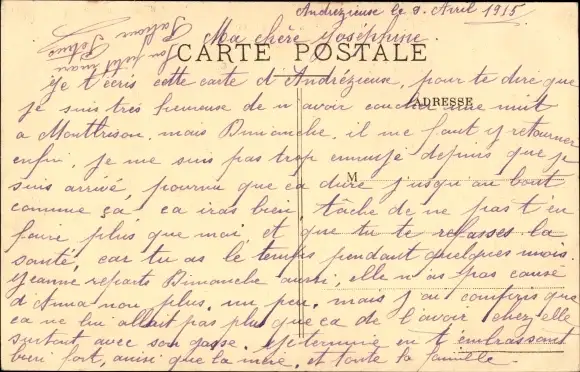 Andrézieuse le 9. Avril 1915
Ma chère Joséphine.
CARTE POSTALE
Je t'écris cette carte d'Andrézieuse, pour te dire que
je suis très heureuse de n'avoir coucher une nuit
ADRESSE
a Montbrison. mais Dimanche, il me faut y retourner
enfin, je me suis pas trop ennuyé depuis que je
suis arrivé, pourvu que ça dure jusqu'au bout
M
comme ça ça iras bien, tâche de ne pas t'en
faire plus que moi et que tu te refasses la
santé, car tu as le temps pendant quelques mois.
Jeanne reparts Dimanche aussi, elle n'as pas causé
d'Anna non plus. un peu, mais j'ai compris que
ça ne lui allait pas plus que ça de l'avoir chez elle
surtout avec son gosse. Je termine en t'embrassant
bien fort, ainsi que la mère, et toute la famille.
Ton petit